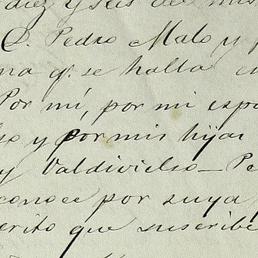 diez y seis de mis
D. Pedro Malo y p
na q. se halla en
Por mí, por mi espo
so y por mis hijas
y Valdivielso_ Pe
conoce por suya
erito que suscribe